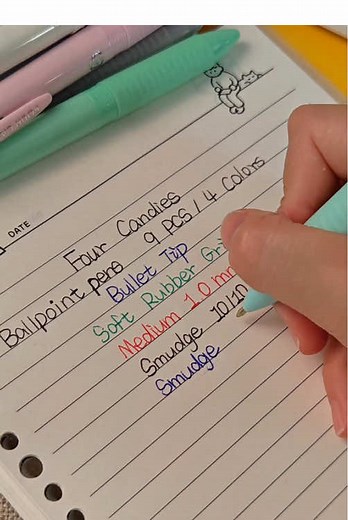 DATE
Four Candies
Ballpoint pens 9 PCS / 4 Colors
Bullet Tip
Soft Rubber Gri
Medium 1.0 mm
Smudge 10/10
Smudge